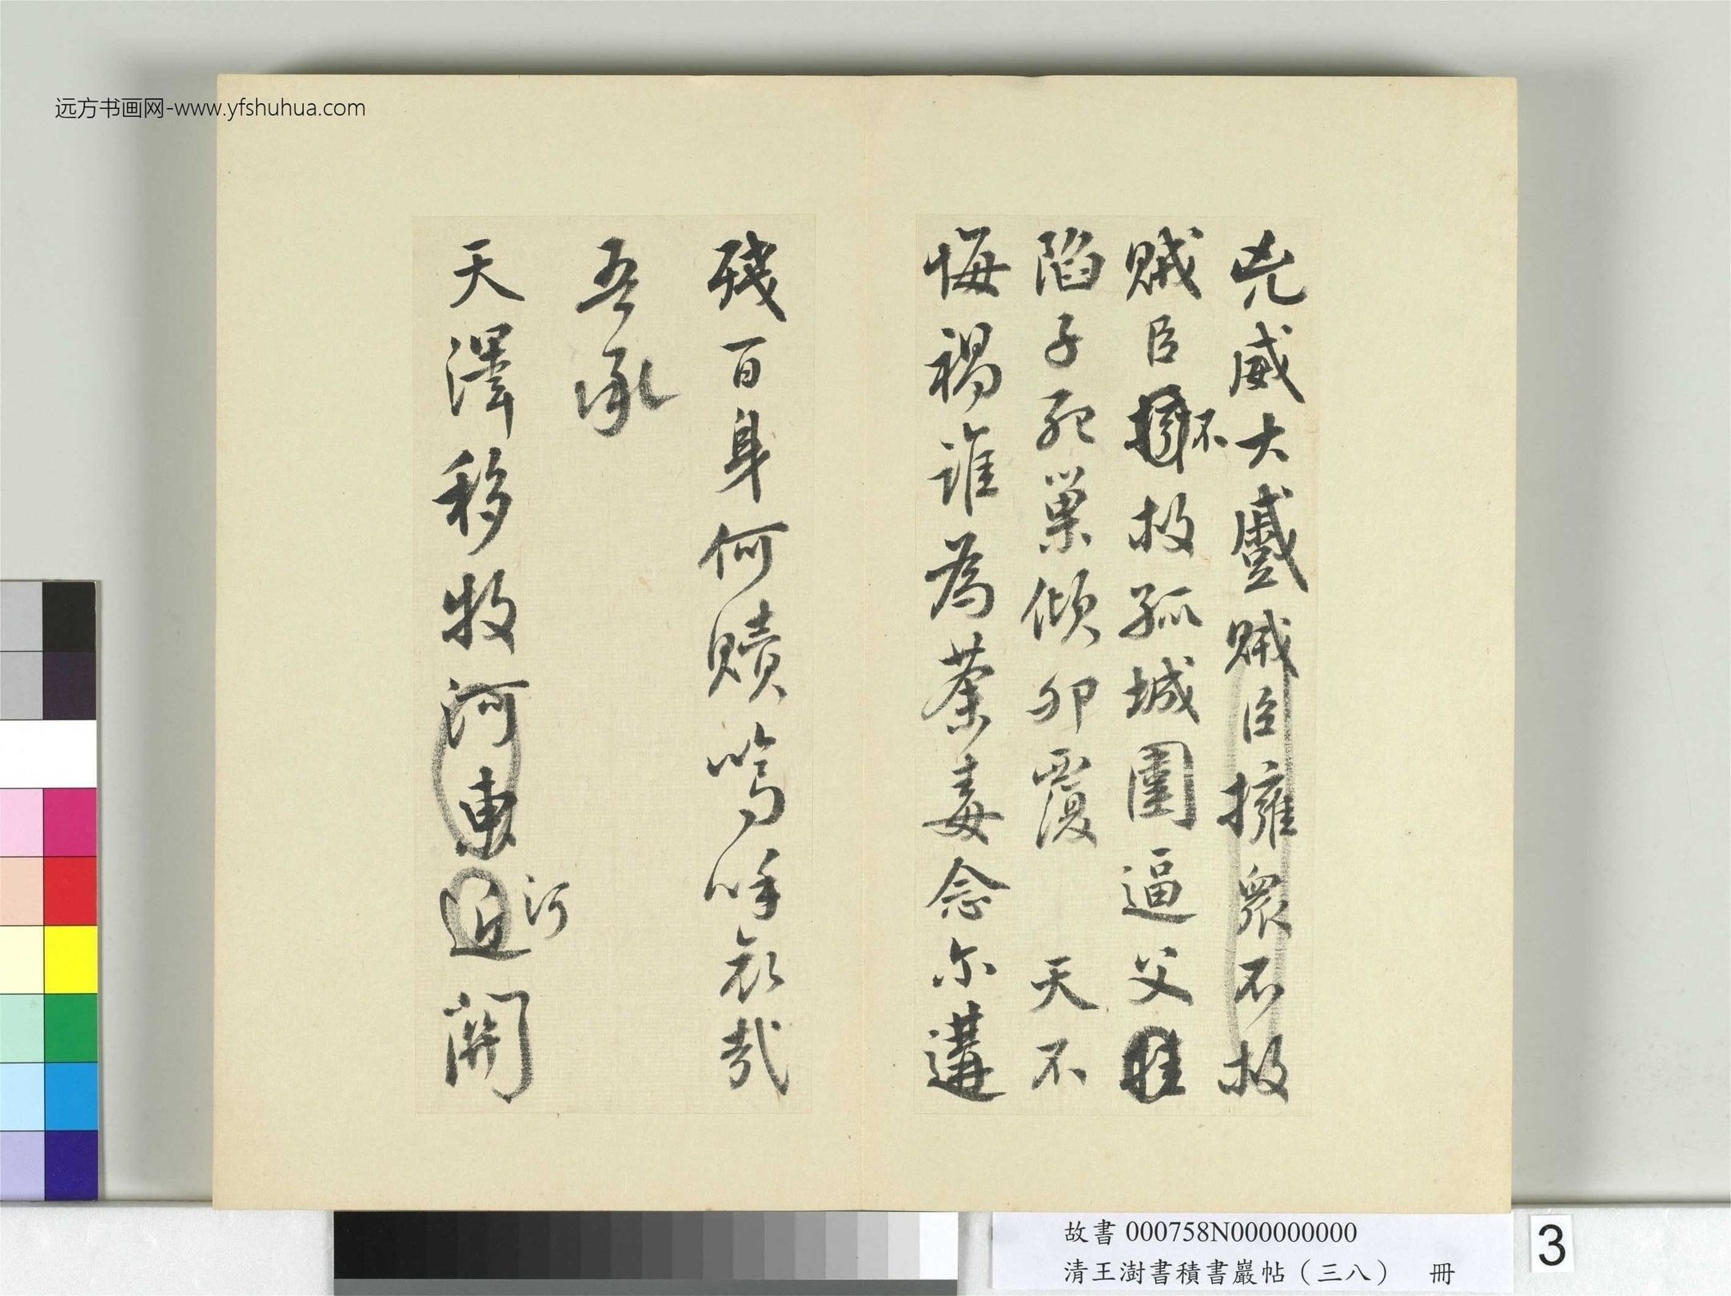 远方书画网-www.yfshuhua.com
兇威大蹙賊臣擁衆不救
賊臣不救孤城圍逼父
陷子死巢傾卵覆 天不
悔禍誰為荼毒念尔遘
殘百身何贖嗚呼哀哉
吾承
天澤移牧河東近河關
故書000758N000000000
清王澍書積書巖帖（三八） 冊
3